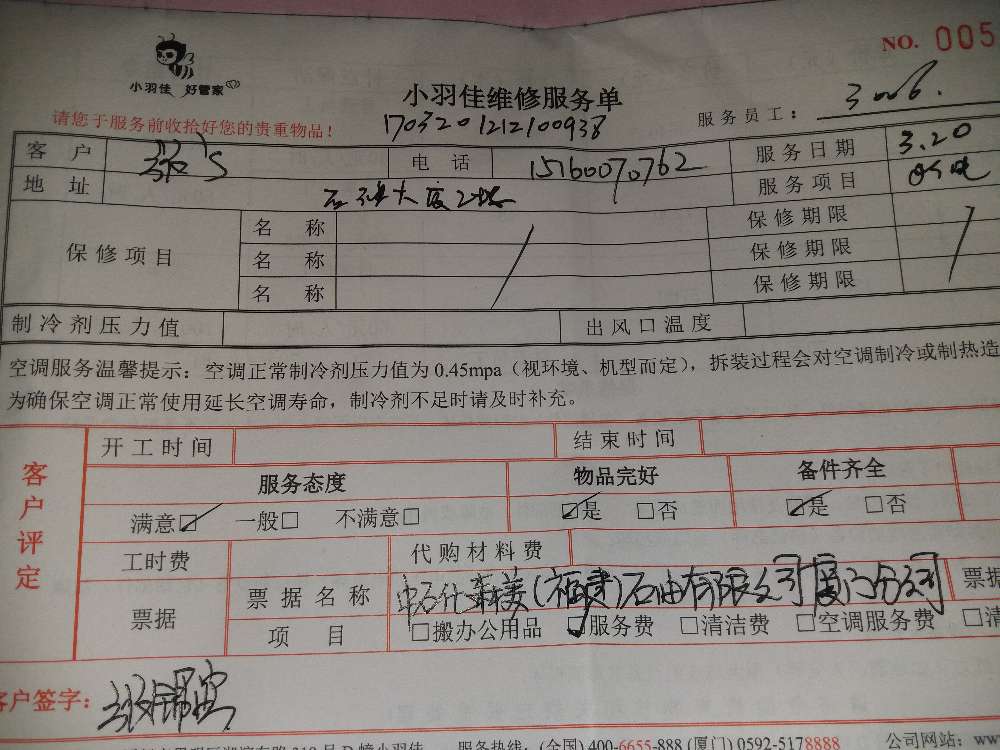 NO. 005
小羽佳 好管家
小羽佳维修服务单
请您于服务前收拾好您的贵重物品！
1703201212100938
服务员工： 3006.
客 户 张's 电 话 15160070762 服务日期 3.20
地 址 石油大厦2楼 服务项目
保修项目 名 称 保修期限
名 称 保修期限
名 称 保修期限
制冷剂压力值 出风口温度
空调服务温馨提示：空调正常制冷剂压力值为 0.45mpa（视环境、机型而定），拆装过程会对空调制冷或制热造
为确保空调正常使用延长空调寿命，制冷剂不足时请及时补充。
客户评定
开工时间 结束时间
服务态度 物品完好 备件齐全
满意☑ 一般□ 不满意□ ☑是 □否 ☑是 □否
工时费 代购材料费
票据 票据名称 中石化森美(福建)石油有限公司厦门分公司 票据
项 目 □搬办公用品 ☑服务费 □清洁费 □空调服务费 □清
客户签字：
服务热线：(全国) 400-6655-888 (厦门) 0592-5178888 公司网站：ww